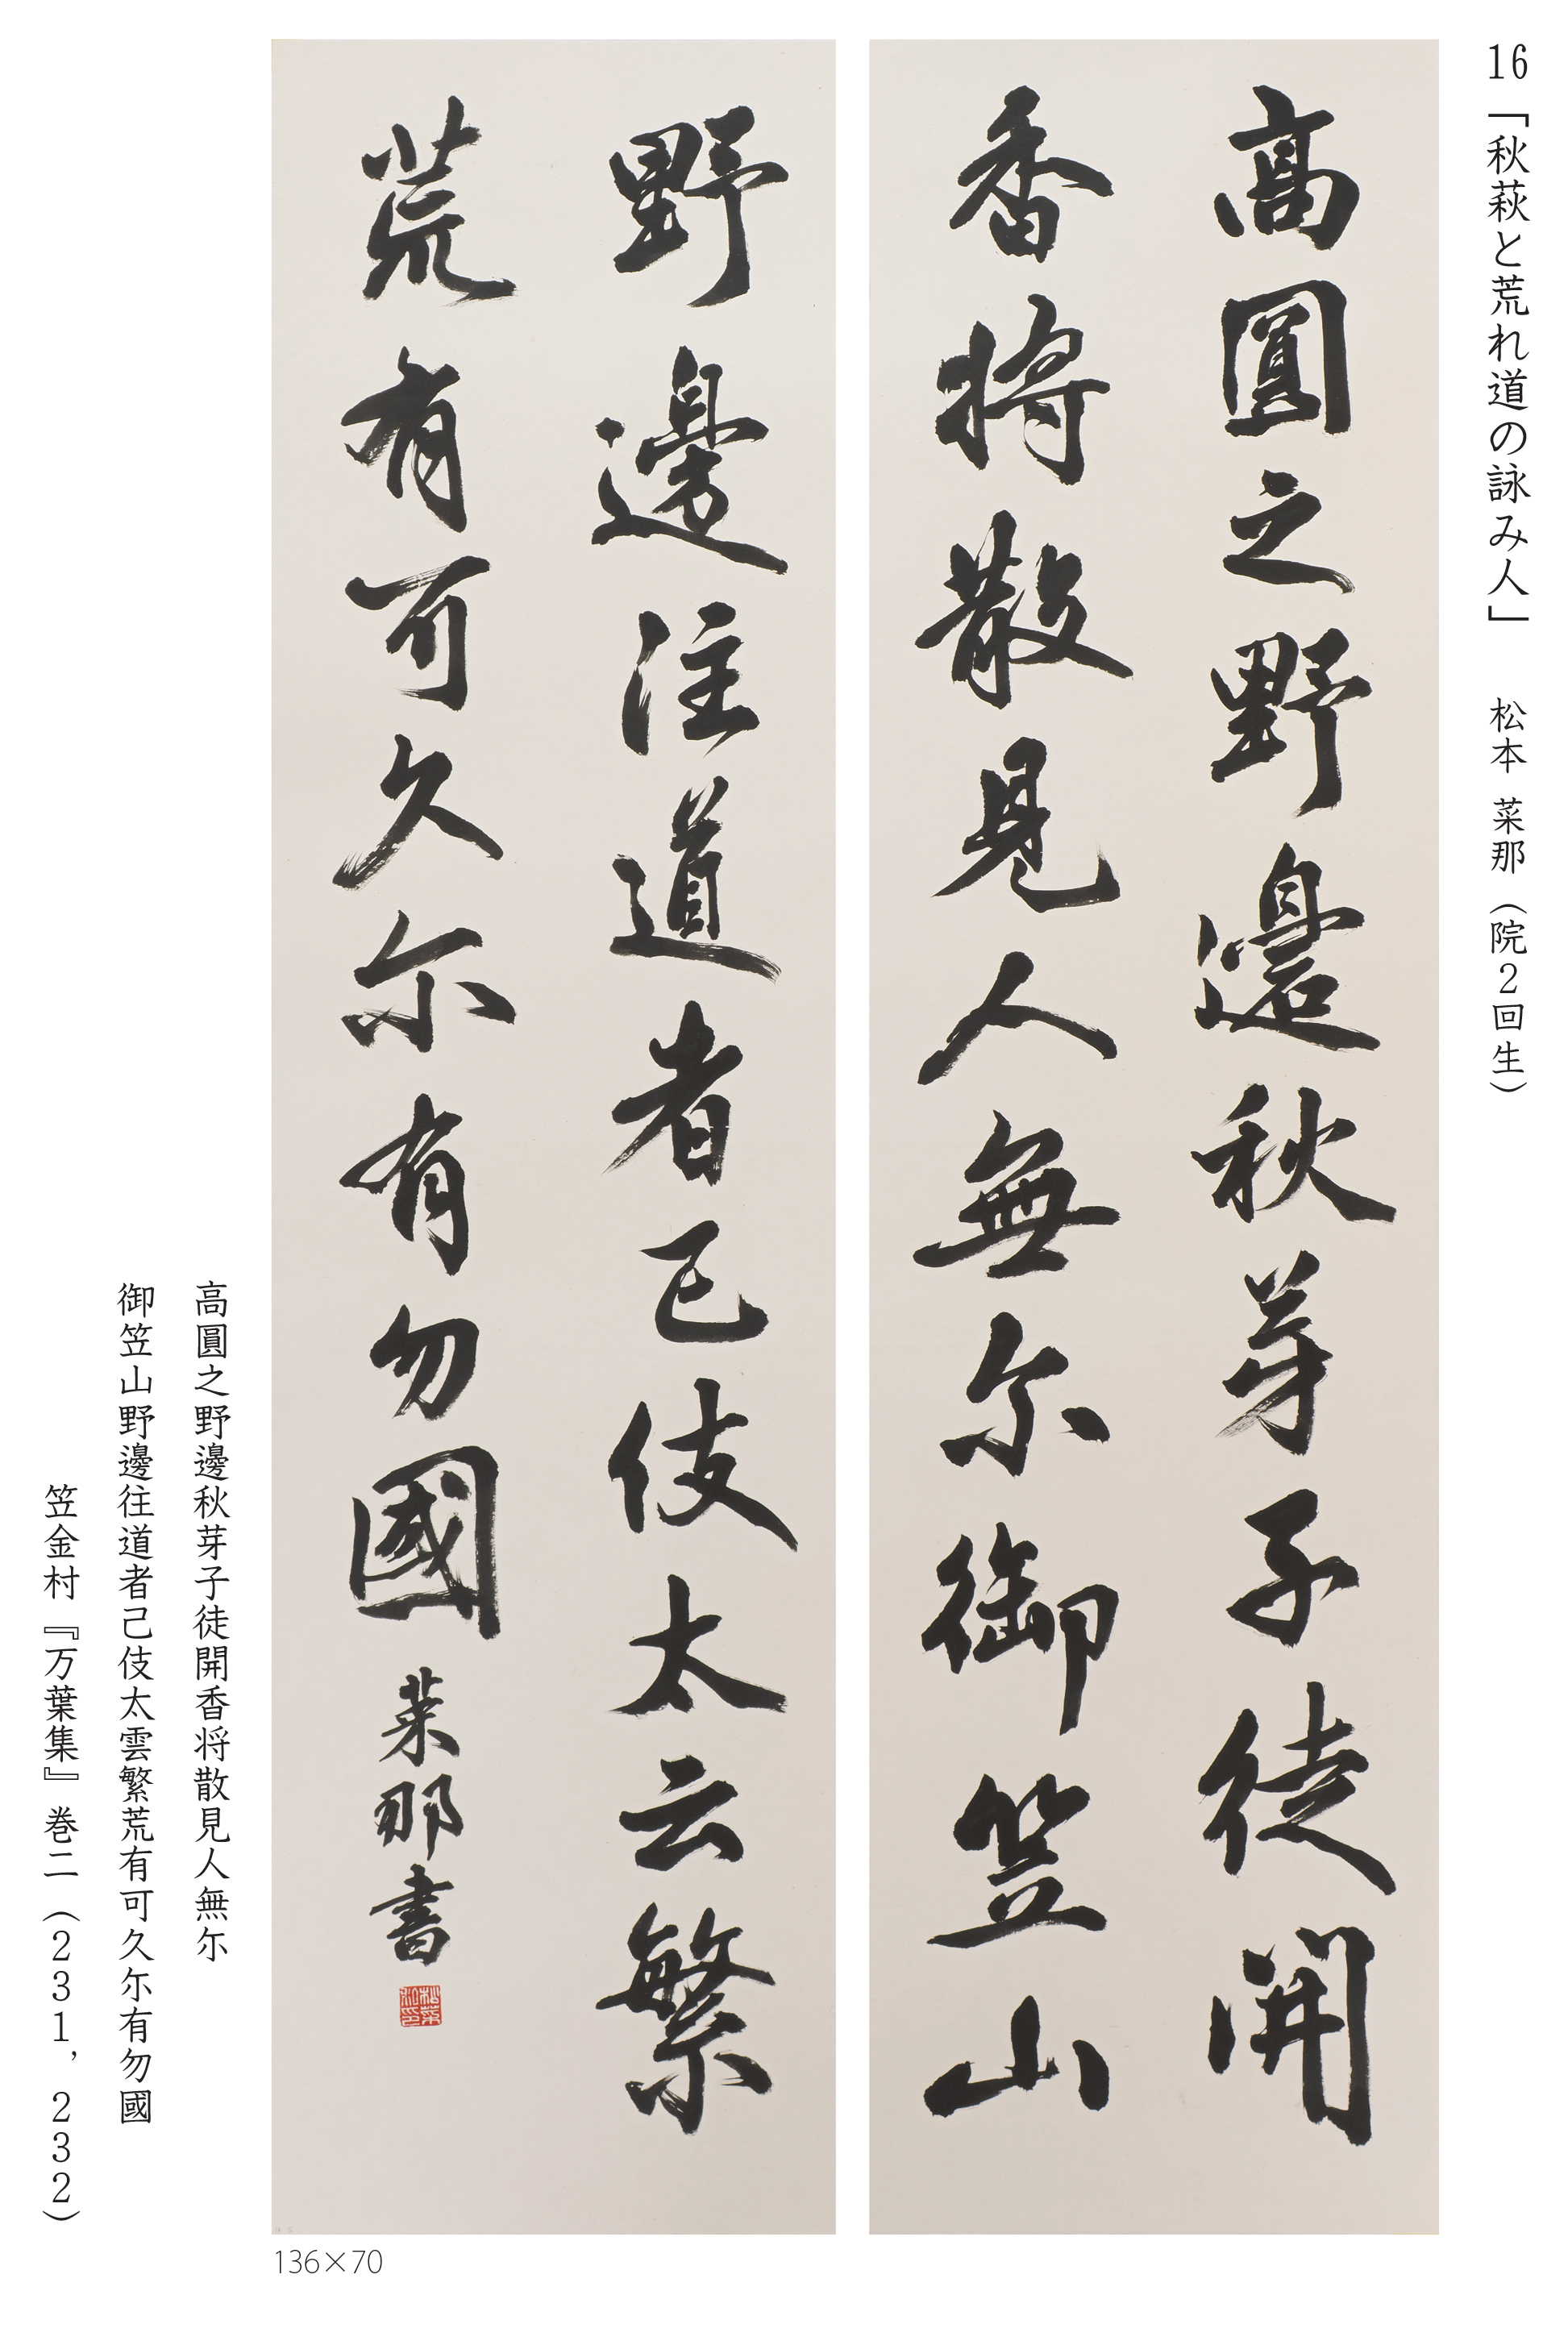 16「秋萩と荒れ道の詠み人」 松本 菜那（院2回生）
高圓之野邊秋芽子徒開
香将散見人無尓御笠山
野邊注道者己伎太云繁
荒有可久尓有勿國 菜那書
高圓之野邊秋芽子徒開香将散見人無尓
御笠山野邊往道者己伎太雲繁荒有可久尓有勿國
笠金村『万葉集』巻二（231，232）
136×70